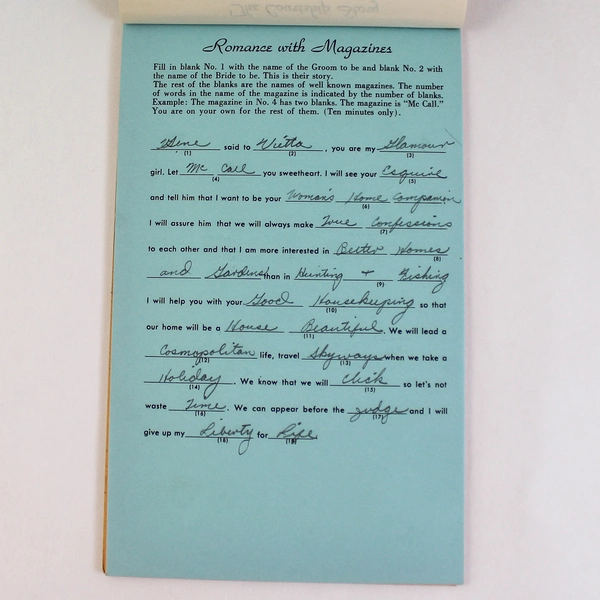 Romance with Magazines
Fill in blank No. 1 with the name of the Groom to be and blank No. 2 with
the name of the Bride to be. This is their story.
The rest of the blanks are the names of well known magazines. The number
of words in the name of the magazine is indicated by the number of blanks.
Example: The magazine in No. 4 has two blanks. The magazine is "Mc Call."
You are on your own for the rest of them. (Ten minutes only).
Gene said to Vietta, you are my Glamour
(1) (2) (3)
girl. Let Mc Call you sweetheart. I will see your Esquire
(4) (5)
and tell him that I want to be your Woman's Home Companion
(6)
I will assure him that we will always make True Confessions
(7)
to each other and that I am more interested in Better Homes
(8)
and Gardens than in Hunting + Fishing
(9)
I will help you with your Good Housekeeping so that
(10)
our home will be a House Beautiful. We will lead a
(11)
Cosmopolitan life, travel Skyways when we take a
(12) (13)
Holiday. We know that we will Click so let's not
(14) (15)
waste Time. We can appear before the judge and I will
(16) (17)
give up my Liberty for Life.
(18) (19)